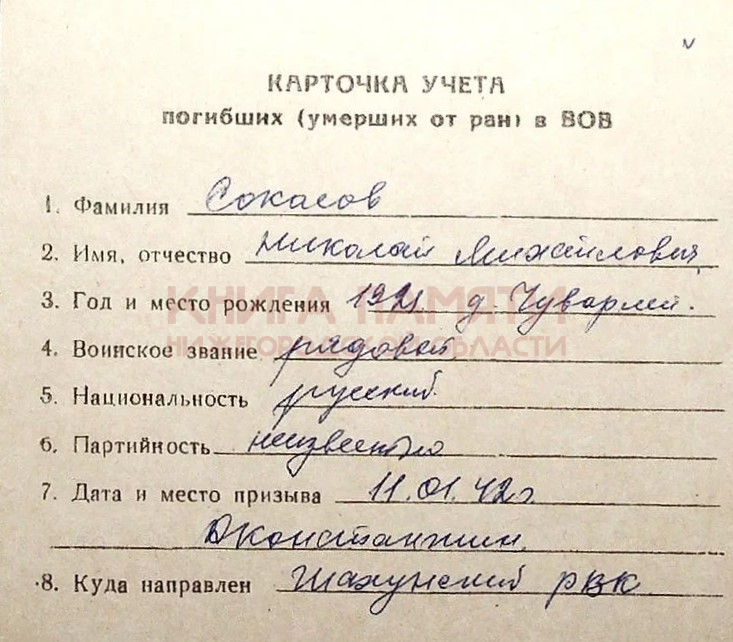 КАРТОЧКА УЧЕТА
погибших (умерших от ран) в ВОВ
1. Фамилия Сокасов
2. Имя, отчество Николай Михайлович
3. Год и место рождения 1921 д. Чуварлей.
КНИГА ПАМЯТИ
4. Воинское звание рядовой
НИЖЕГОРОДСКОЙ ОБЛАСТИ
5. Национальность русский.
6. Партийность неизвестно
7. Дата и место призыва 11.01.42г.
Дконстантин.
8. Куда направлен Шахунский РВК